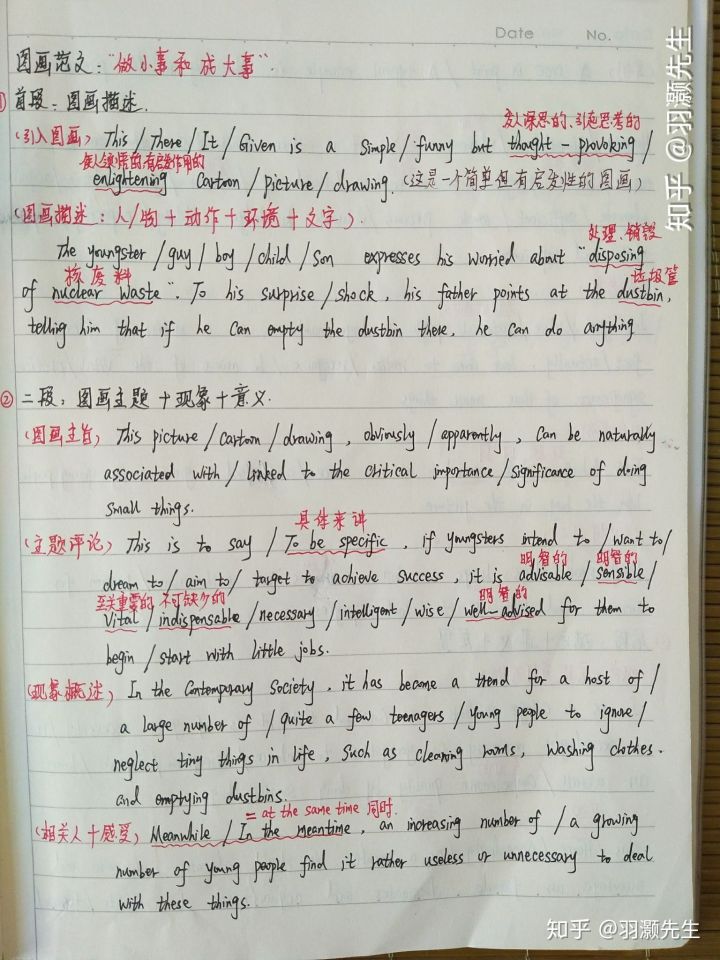 Date No.
图画范文："做小事和成大事".
① 首段：图画描述.
发人深思的、引起思考的
(引入图画) This / There / It / Given is a simple / funny but thought-provoking /
使人领悟的，有启发作用的
enlightening cartoon / picture / drawing. (这是一个简单但有启发性的图画)
(图画描述：人/物+动作+环境+文字).
处理、销毁
The youngster / guy / boy / child / son expresses his worried about "disposing
核废料 垃圾筐
of nuclear waste". To his surprise / shock, his father points at the dustbin,
telling him that if he can empty the dustbin there, he can do anything
② 二段：图画主题+现象+意义.
(图画主旨) This picture / cartoon / drawing, obviously / apparently, can be naturally
associated with / linked to the critical importance / significance of doing
small things.
具体来讲
(主题评论) This is to say / To be specific, if youngsters intend to / want to /
明智的 明智的
dream to / aim to / target to achieve success, it is advisable / sensible /
至关重要的 不可缺少的 明智的
vital / indispensable / necessary / intelligent / wise / well-advised for them to
begin / start with little jobs.
(现象概述) In the Contemporary Society, it has become a trend for a host of /
a large number of / quite a few teenagers / young people to ignore /
neglect tiny things in life, such as cleaning rooms, washing clothes.
and emptying dustbins.
= at the same time 同时.
(相关人+感受) Meanwhile / In the meantime, an increasing number of / a growing
number of young people find it rather useless or unnecessary to deal
with these things.
知乎 @羽灏先生
知乎 @羽灏先生